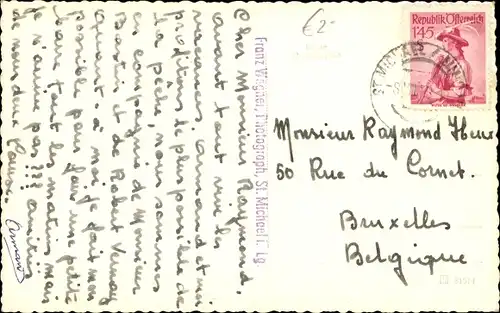 Cher Monsieur Raymond.
avant tout vive les
vacances, Armand et moi
profitons le plus possible de
la pêche, nous sommes
en compagnie de Monsieur
Bastin et de Robert Vernay
quant à moi je fait mon
possible pour faire une petite
tous les matins mais
je n'aime pas ??? amitiés
de nous deux
Armand
Franz Wagner, Photograph, St. Michael i. Lg.
€2-
Republik Österreich
1.45
Monsieur Raymond
50 Rue du Cornet.
Bruxelles
Belgique